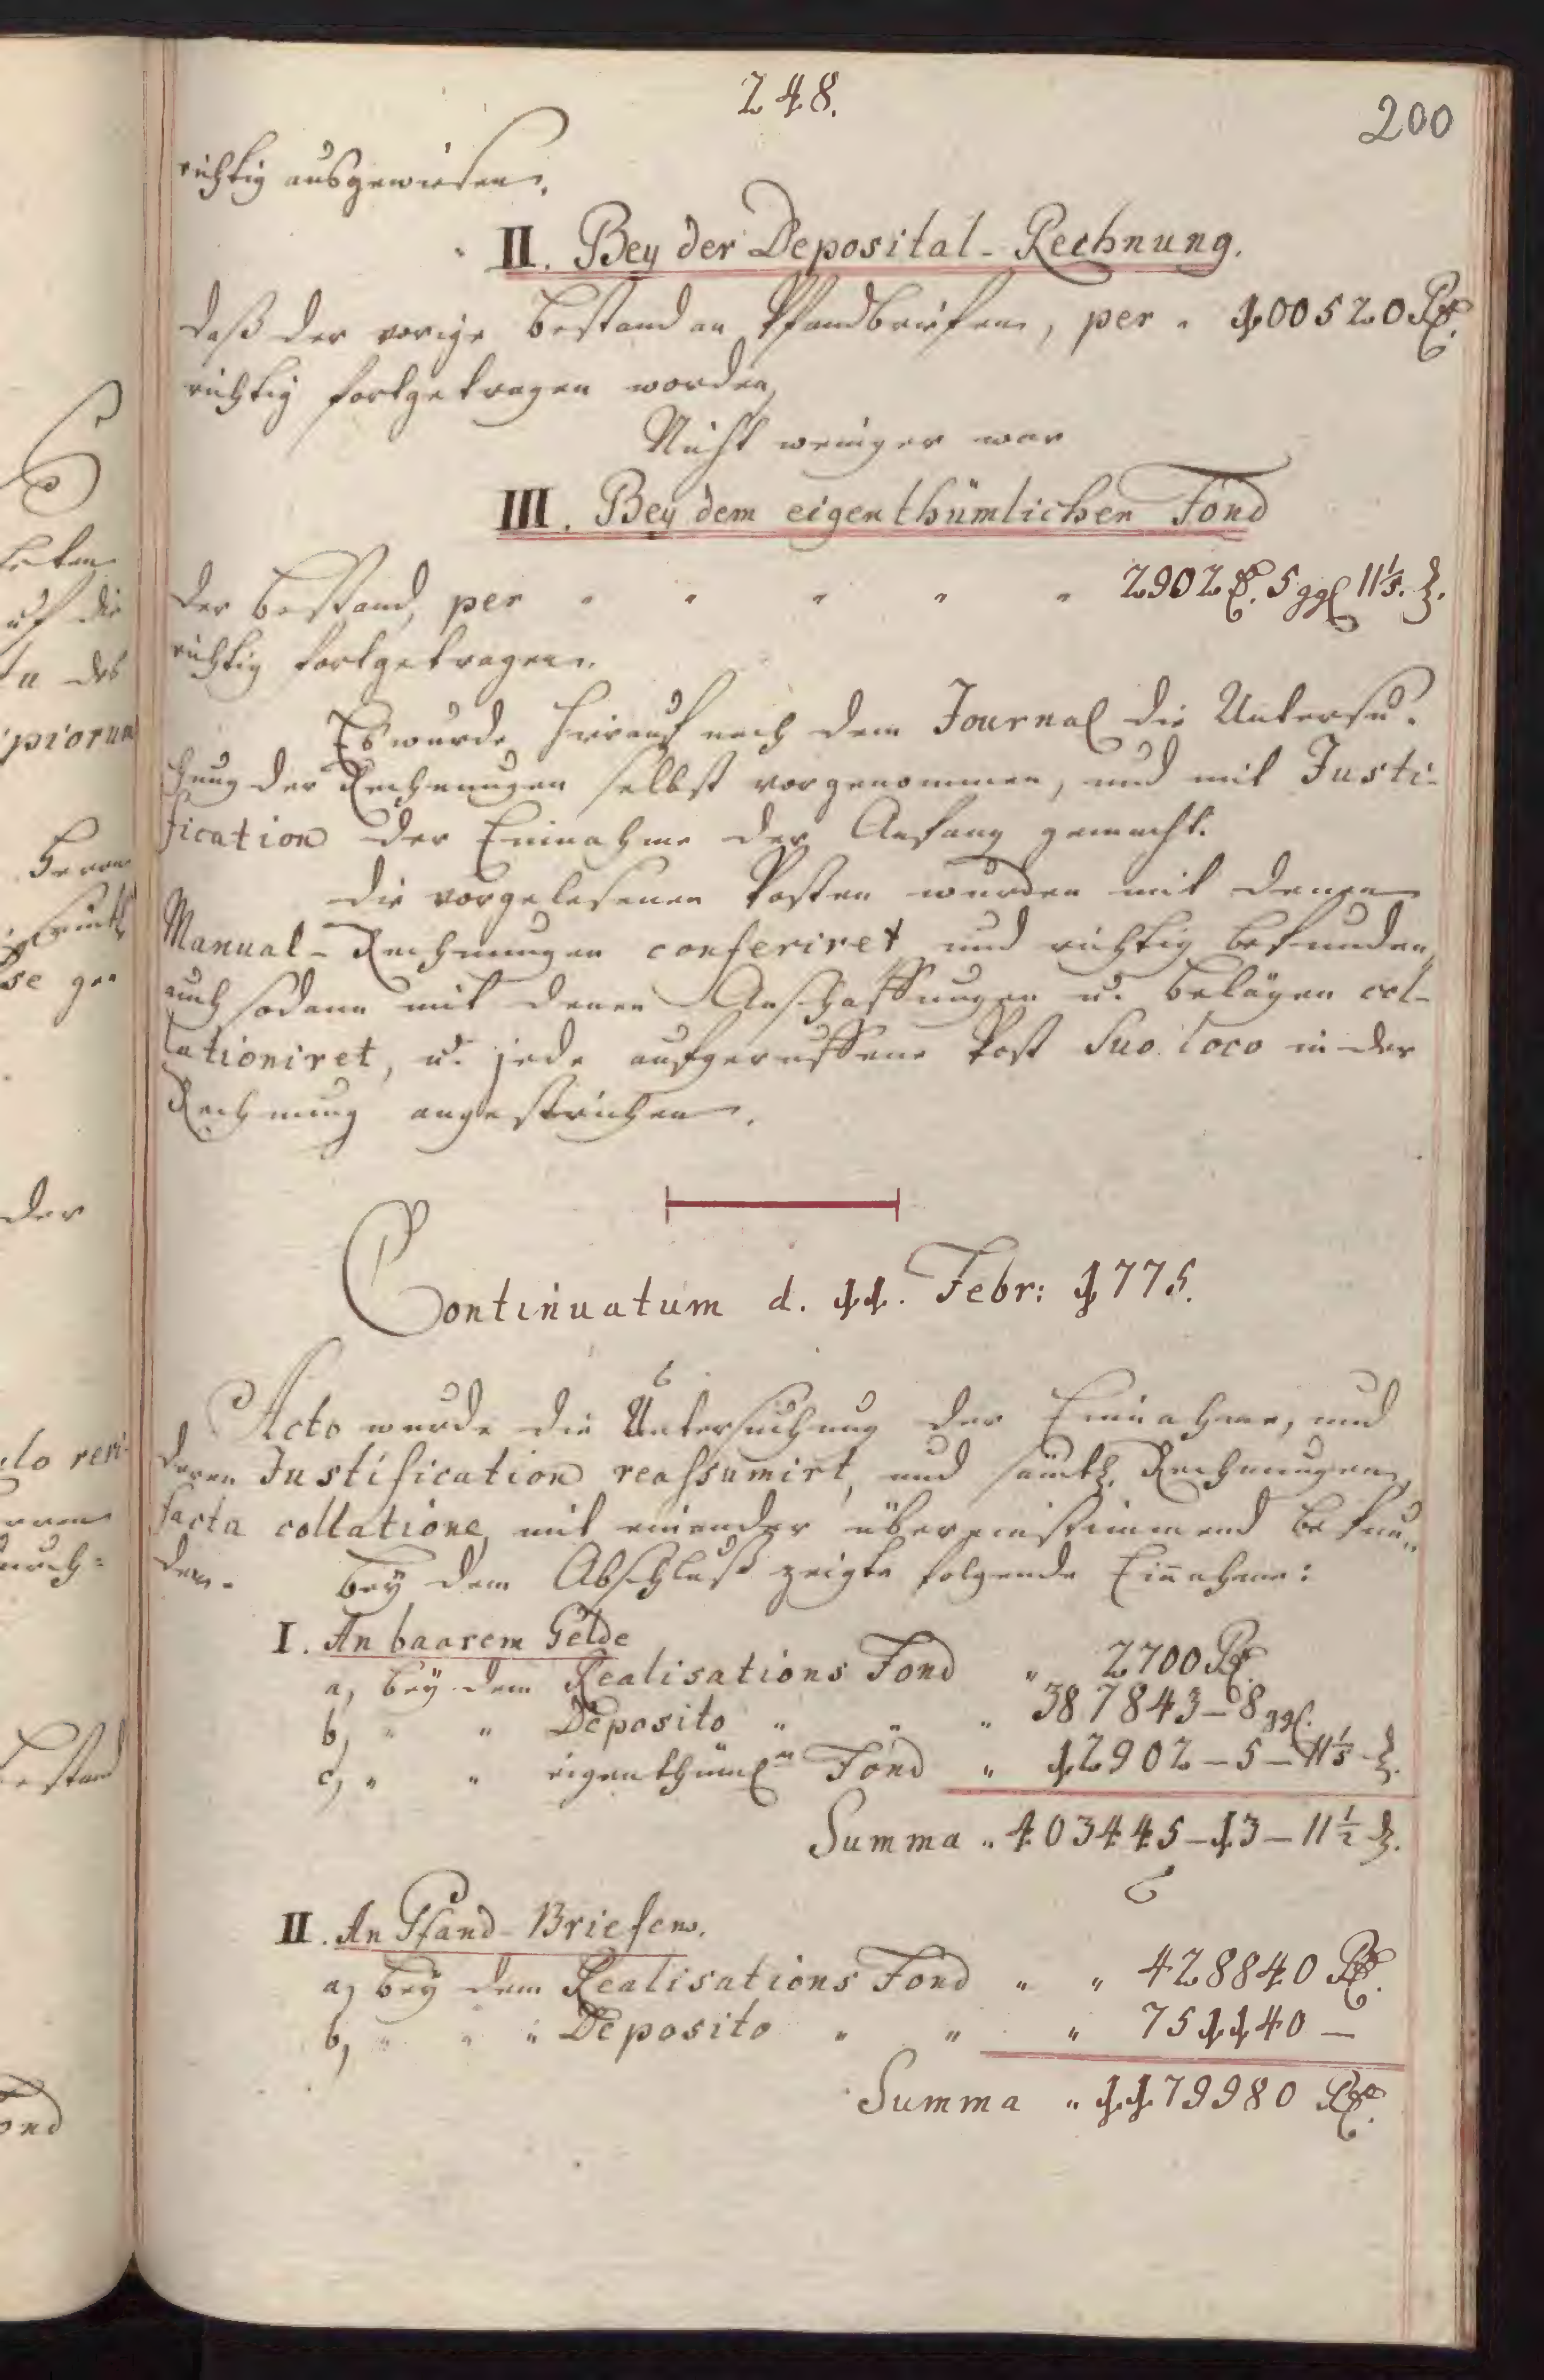 248.
200
richtig ausgewiesen.
II. Bey der Deposital-Rechnung.
daß der vorige Bestand an Pfandbriefen, per " 100520 Rthl.
richtig fortgetragen worden,
Nicht weniger war
III. Bey dem eigenthümlichen Fond
der Bestand, per " " " " " 2902 Rthl. 5 ggl 11 1/5. d.
richtig fortgetragen.
Es wurde hierauf nach dem Journal die Untersu-
chung der Rechnungen selbst vorgenommen, und mit Justi-
fication der Einnahme der Anfang gemacht.
Die vorgelesenen Posten wurden mit denen
Manual-Rechnungen conferiret und richtig befunden,
auch sodann mit denen Anschaffungen u. Belägen col-
lationiret, u. jede aufgeruffene Post suo loco in der
Rechnung angestrichen.
Continuatum d. 11. Febr: 1775.
Acto wurde die Untersuchung der Einnahme, und
deren Justification reassumirt, und sämtl. Rechnungen,
facta collatione, mit einander übereinstimmend befun-
den. Bey dem Abschluß zeigte folgende Einnahme:
I. An baarem Gelde
a, bey dem Realisations Fond " 2700 Rthl.
b, " " Deposito " " " 387843 – 8 ggl.
c, " " eigenthüml.n Fond " 12902 – 5 – 11 1/5 d.
Summa " 403445 – 13 – 11 1/2 d.
II. An Pfand-Briefen.
a, bey dem Realisations Fond " " 428840 Rthl.
b, " " " Deposito " " " 751140 –
Summa " 1179980 Rthl.